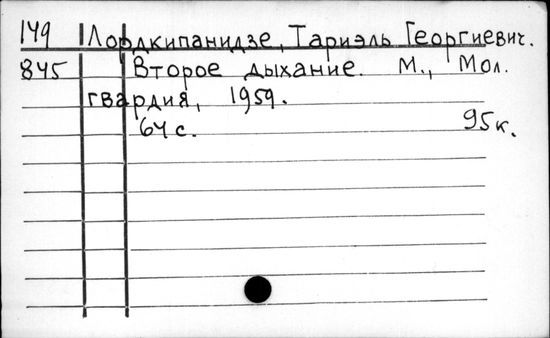 149 Лордкипанидзе, Тариэль Георгиевич.
845 Второе дыхание. М., Мол.
гвардия, 1959.
64 с. 95к.